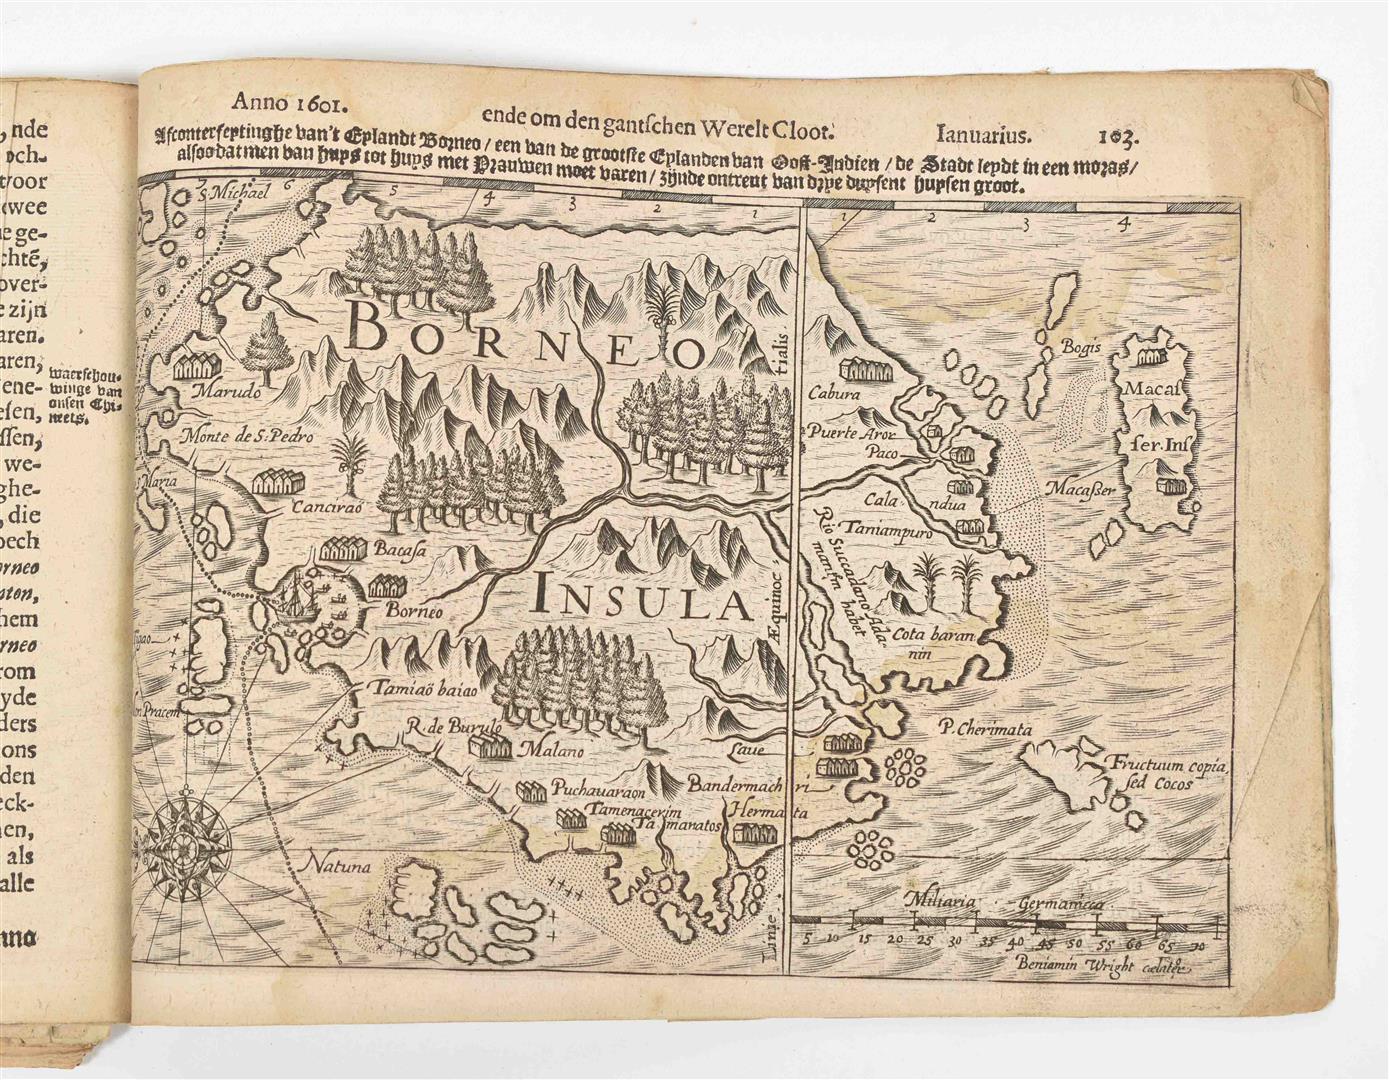 Anno 1601.
ende om den gantschen Werelt Cloot.
Ianuarius.
103.
Afconterfeytinghe van't Eylandt Borneo / een van de grootste Eylanden van Oost-Indien / de Stadt leydt in een moras /
alsoo datmen van huys tot huys met Prauwen moet varen / zijnde ontrent van drye duysent huysen groot.
7 6 5 4 3 2 1 1 2 3 4
S Michael
BORNEO
tialis
Marudo
Monte de S. Pedro
S Maria
Cancirao
Bacasa
Borneo
INSULA
Æquinoc
Tamiaõ baiao
R. de Burulo
Malano
Puchavaraon
Tamenacerim
Tamaratos
Bandermachiri
Hermatta
Lave
Natuna
Linie
Cabura
Puerte Aror
Paco
Calandua
Taniampuro
Rio Succadano Ada-
mantin habet
Cota baran
nin
Bogis
Macas
ser. Ins
Macasser
P. Cherimata
Fructuum copia,
sed Cocos
Miliaria Germanicca
5 10 15 20 25 30 35 40 45 50 55 60 65 70
Beniamin Wright cælator
waerschou-
winge van
onsen Chi-
neets.
nde
och-
twee
e ge-
chtē,
over-
e zijn
aren.
aren,
ene-
esen,
ssen,
we-
ghe-
, die
oech
orneo
nton,
hem
orneo
rom
yde
ders
ons
den
eck-
nen,
als
alle
nno